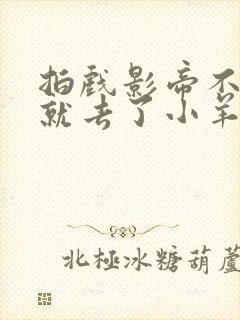 拍戲影帝不
就去了小羊
北極冰糖葫蘆